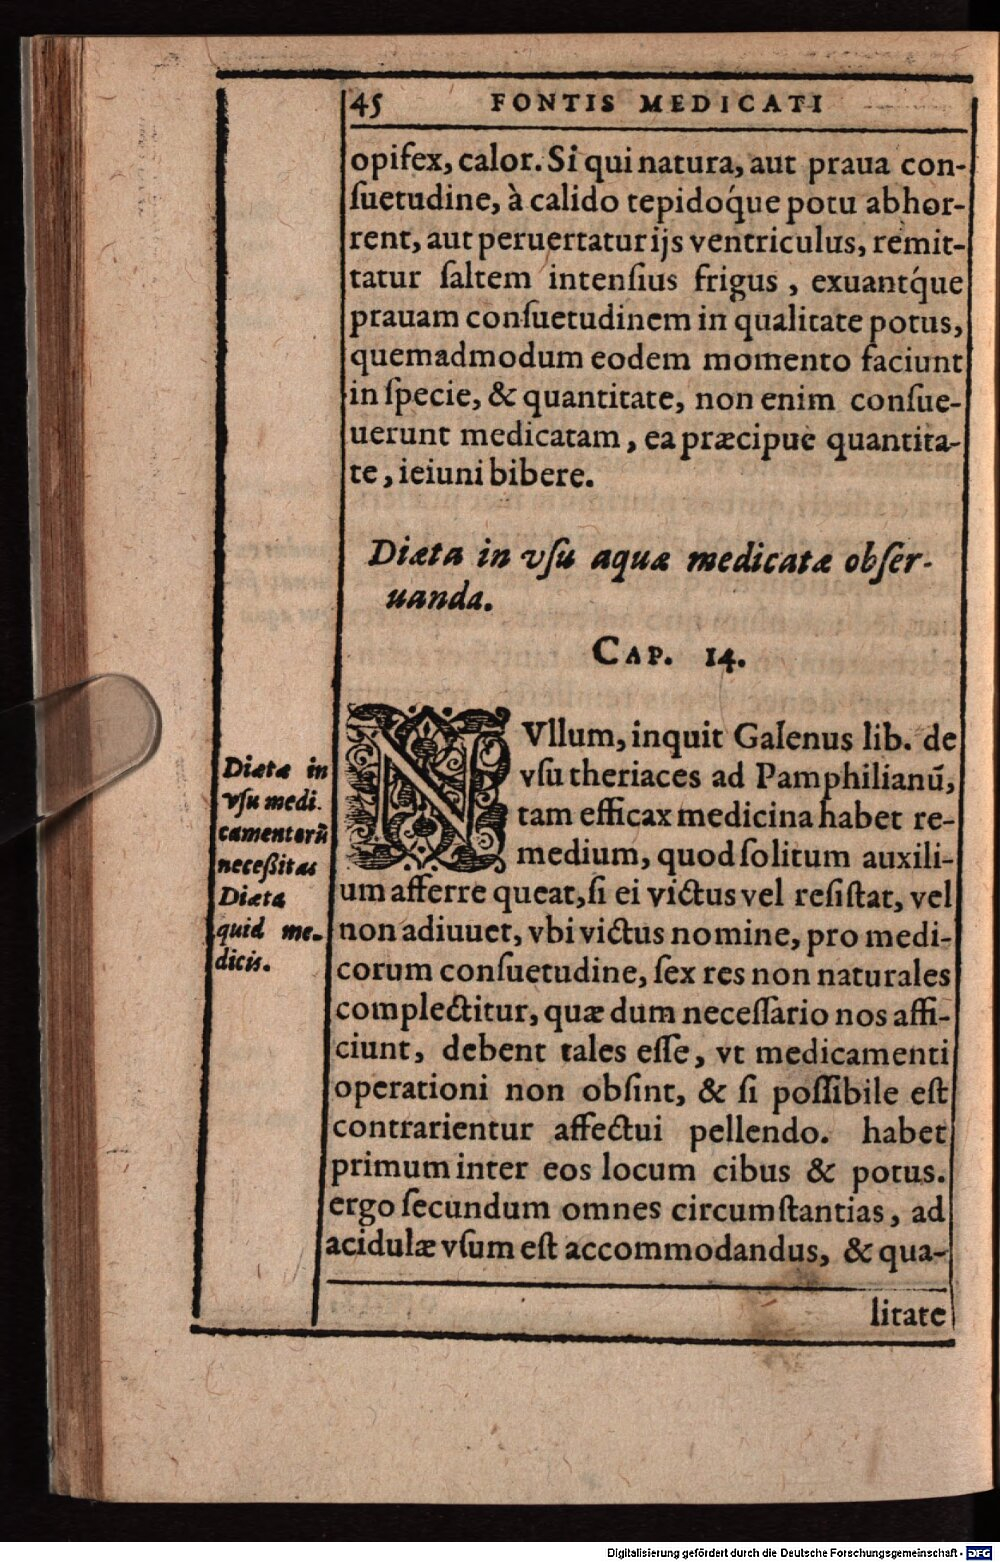 45 FONTIS MEDICATI
opifex, calor. Si qui natura, aut praua con-
ſuetudine, à calido tepidóque potu abhor-
rent, aut peruertatur ijs ventriculus, remit-
tatur ſaltem intenſius frigus, exuantq́ue
prauam conſuetudinem in qualitate potus,
quemadmodum eodem momento faciunt
in ſpecie, & quantitate, non enim conſue-
uerunt medicatam, ea præcipue quantita-
te, ieiuni bibere.
Diæta in vſu aquæ medicatæ obſer-
uanda.
CAP. 14.
NVllum, inquit Galenus lib. de
vſu theriaces ad Pamphilianū,
tam efficax medicina habet re-
medium, quod ſolitum auxili-
um afferre queat, ſi ei victus vel reſiſtat, vel
non adiuuet, vbi victus nomine, pro medi-
corum conſuetudine, ſex res non naturales
complectitur, quæ dum neceſſario nos affi-
ciunt, debent tales eſſe, vt medicamenti
operationi non obſint, & ſi poſſibile eſt
contrarientur affectui pellendo. habet
primum inter eos locum cibus & potus.
ergo ſecundum omnes circumſtantias, ad
acidulæ vſum eſt accommodandus, & qua-
litate
Diætæ in
vſu medi.
camentorū
neceßitas
Diæta
quid me-
dicis.
Digitalisierung gefördert durch die Deutsche Forschungsgemeinschaft - DFG